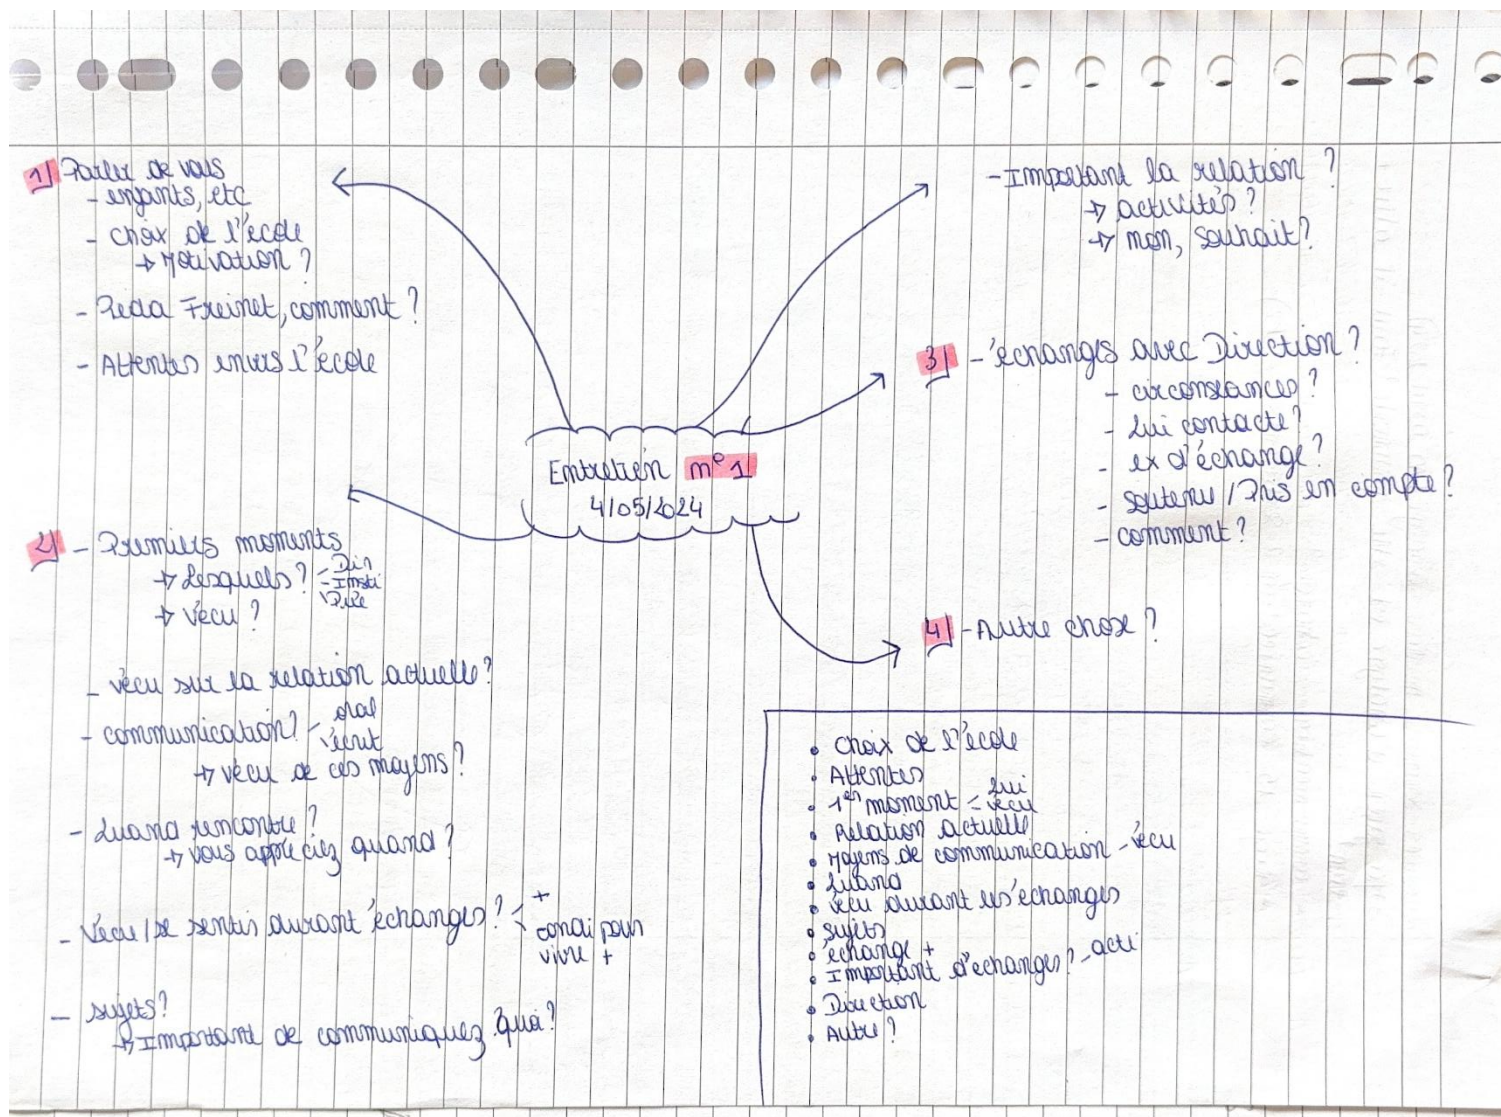 Entretien n° 1
4/05/2024
1) Parler de vous
- enfants, etc
- choix de l'école
→ Motivation ?
- Péda Freinet, comment ?
- Attentes envers l'école
2) - Premiers moments
→ Lesquels ? - Dir
- Insti
- Puée
→ vécu ?
- vécu sur la relation actuelle ?
- communication ? - oral
- écrit
→ vécu de ces moyens ?
- Quand rencontre ?
→ vous appréciez quand ?
- Vécu / se sentis durant échanges ? < +
condi pour
vivre +
- sujets ?
→ Important de communiquez quoi ?
- Important la relation ?
→ activités ?
→ non, souhait ?
3) - échanges avec Direction ?
- circonstances ?
- Qui contacte ?
- ex d'échange ?
- soutenu / Pris en compte ?
- comment ?
4) - Autre chose ?
• Choix de l'école
• Attentes
• 1er moment - Qui
- vécu
• Relation actuelle
• Moyens de communication - vécu
• Quand
• vécu durant les échanges
• sujets
• échange +
• Important d'échanges ? - acti
• Direction
• Autre ?